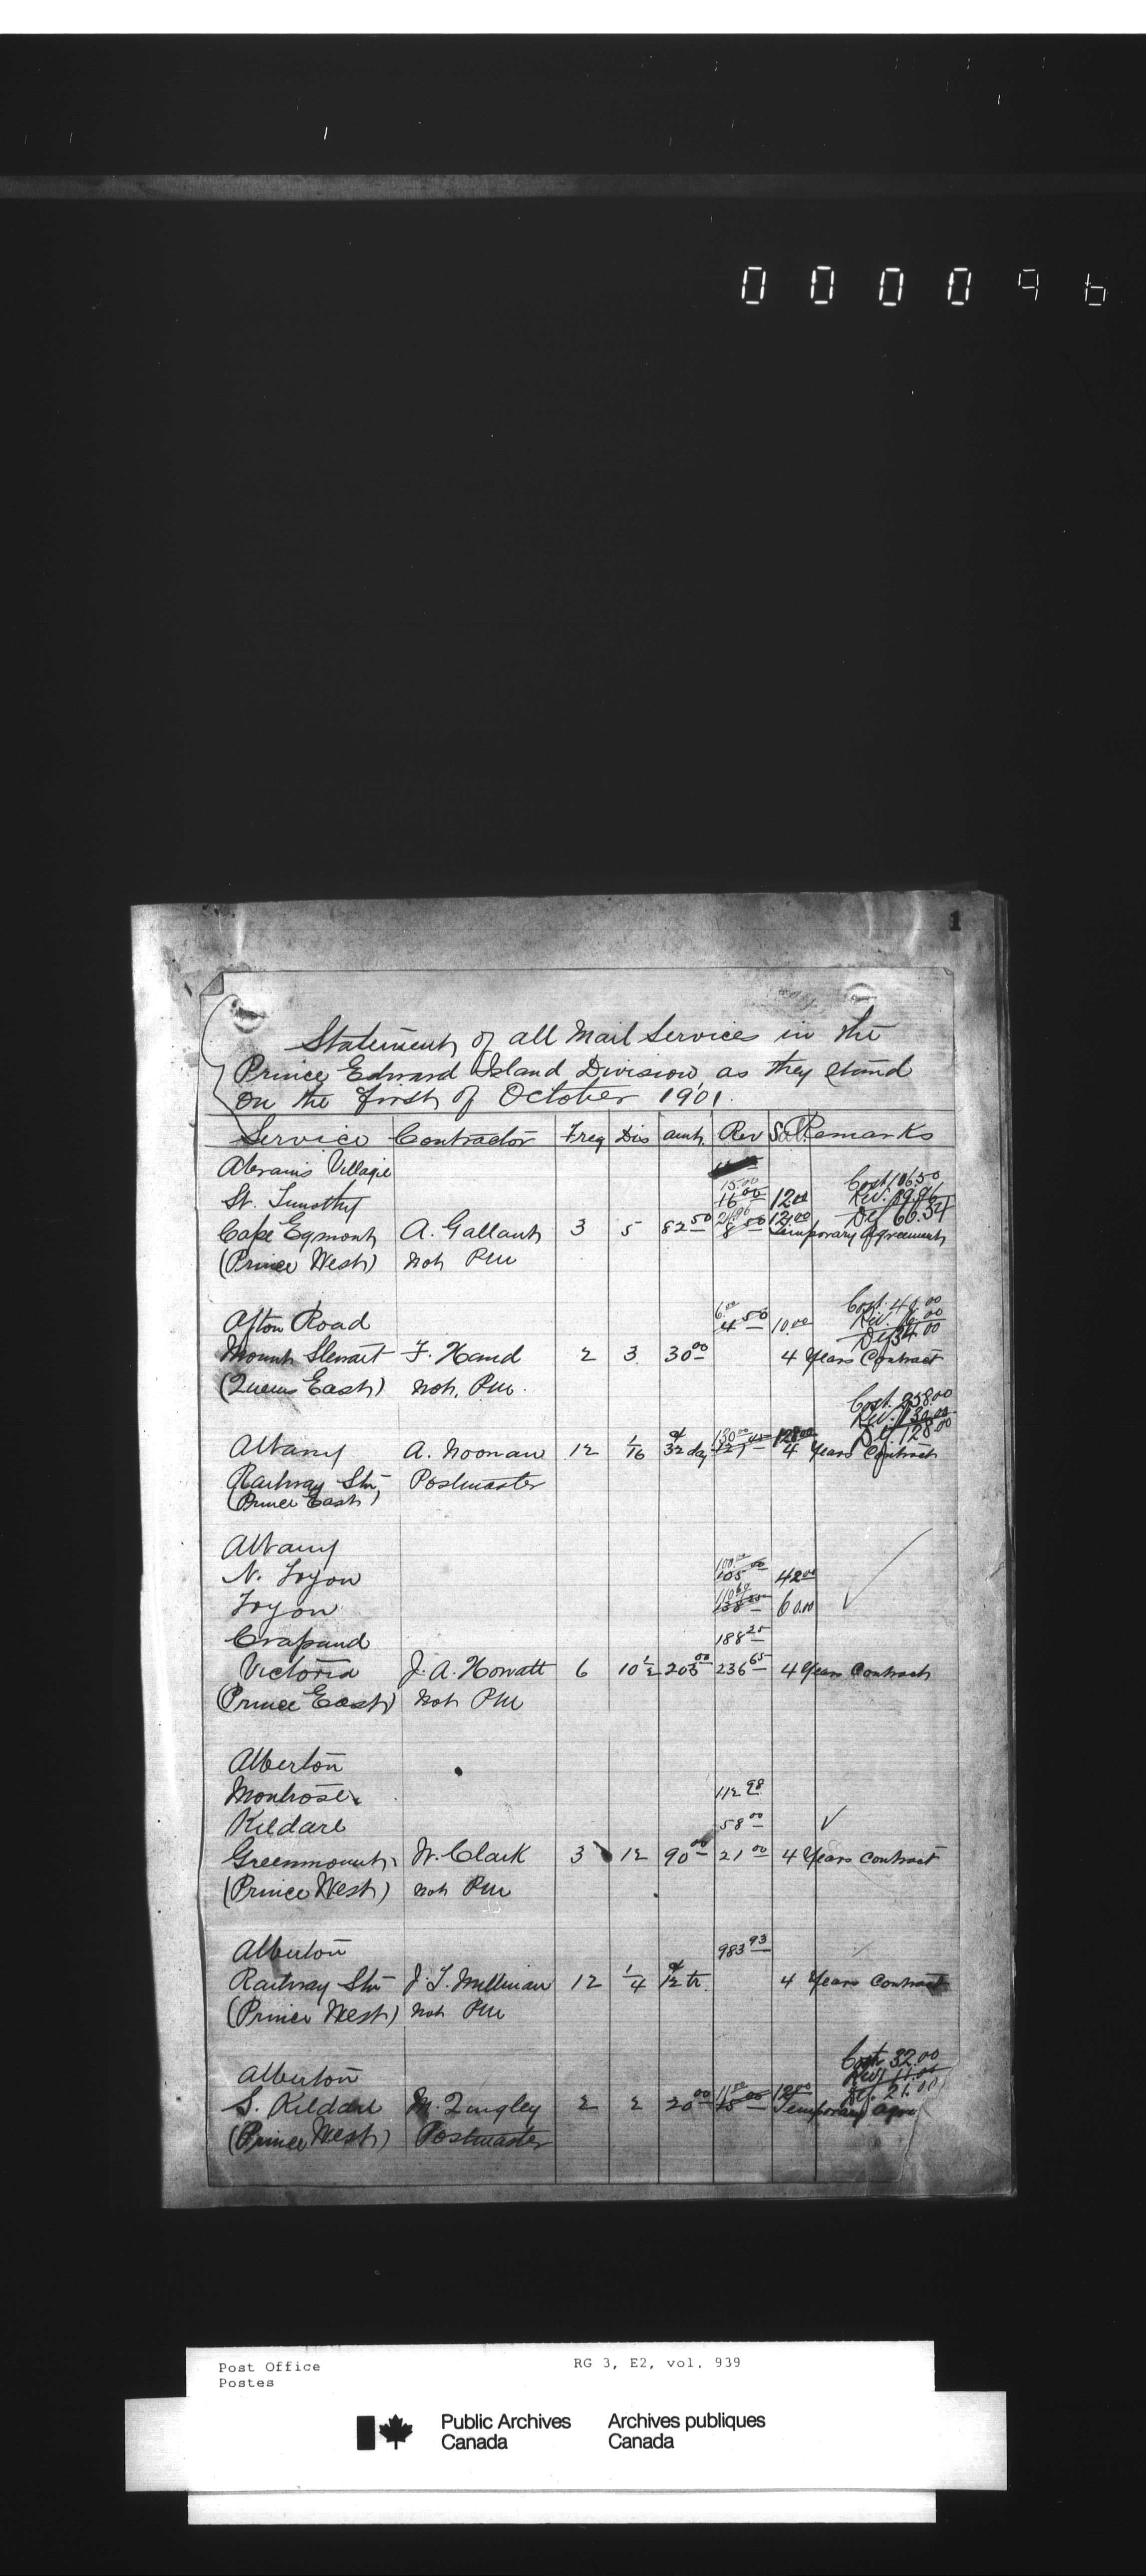 000096
1
Statement of all Mail Services in the
Prince Edward Island Division as they stand
on the first of October 1901.
Service Contractor Freq Dis amt. Rev Sal. Remarks
Abrams Village
15.00 Cost 106.50
St. Timothy 16 00 12 00 Rev. 39.96
Def 66.54
Cape Egmont A. Gallant 3 5 82 50 8 50 12.00 Temporary Agreement
(Prince West) not PM
Cost. 40.00
Afton Road 6.00 4 50 10.00 Rev. 6.00
Def 34.00
Mount Stewart F. Hand 2 3 30 00 4 Years Contract
(Queens East) not PM.
Cost. 258.00
Rev. 130.00
Def. 128.00
Albany A. Noonan 12 1/16 32 day 130 00 128 00 4 Years Contract
Railway Stn Postmaster
(Prince East)
Albany
N. Tryon 100.00 105 00 42 00
Tryon 60.00
Crapaud 188 25
Victoria J. A. Howatt 6 10 1/2 205 00 236 65 4 Years Contract
(Prince East) not PM
Alberton
Montrose 112 98
Kildare 58 00
Greenmount W. Clark 3 12 90 00 21 00 4 Years Contract
(Prince West) not PM
Alberton 983 93
Railway Stn J T. Millman 12 1/4 12 tr. 4 Years Contract
(Prince West) not PM
Cost 32.00
Alberton Rev 11.00
Def. 21.00
S. Kildare M. Tingley 2 2 20 00 11 00 15 00 12 00 Temporary agre
(Prince West) Postmaster
Post Office RG 3, E2, vol. 939
Postes
Public Archives Archives publiques
Canada Canada